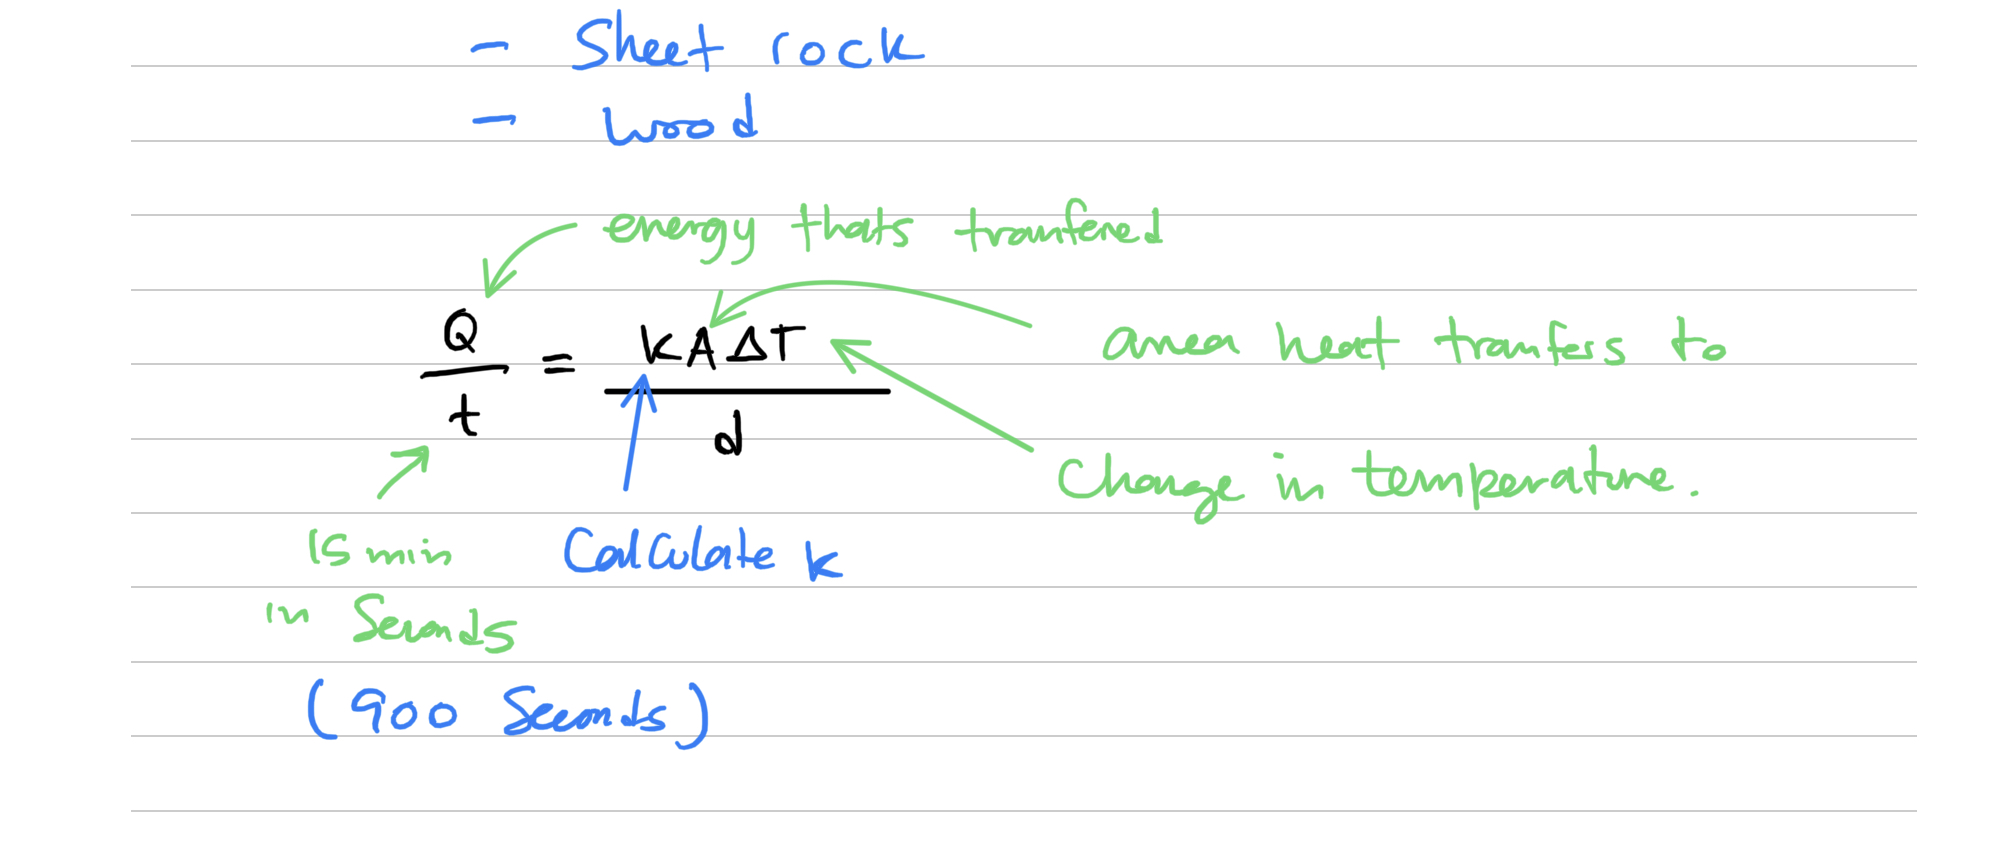 - Sheet rock
- wood
energy thats tranfered
Q/t = kAΔT/d
area heat tranfers to
Change in temperature.
15 min
in Seconds
Calculate k
(900 Seconds)